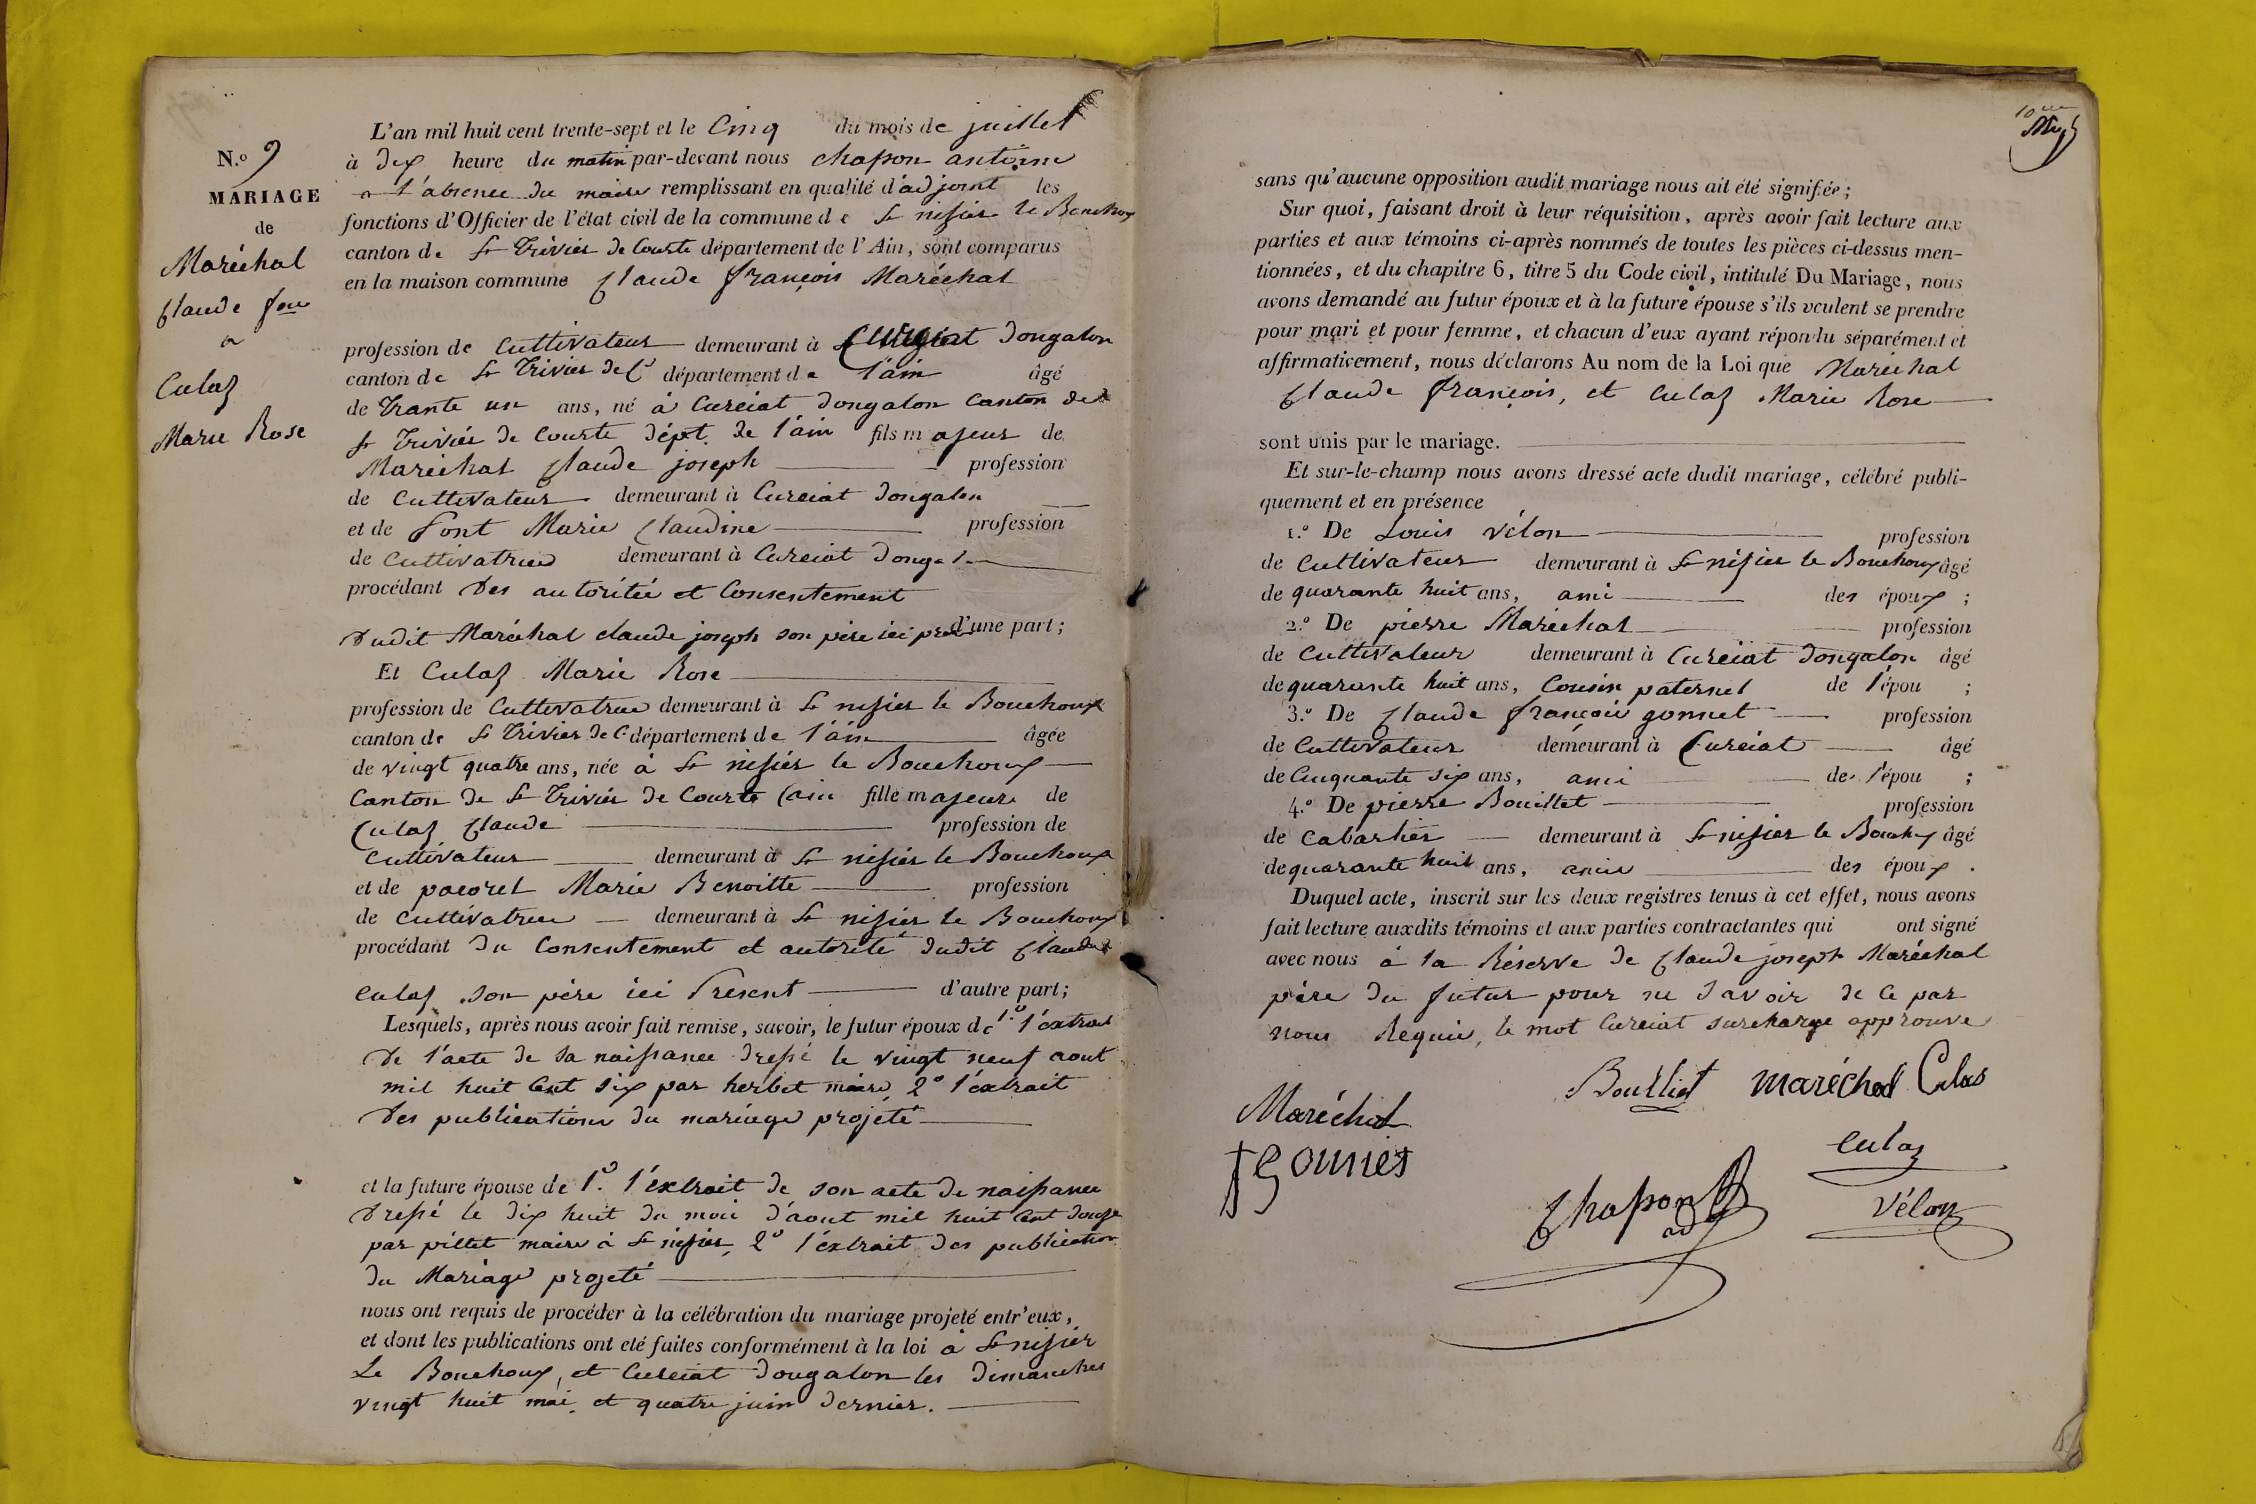 N.o 9
MARIAGE
de
Maréchal
Claude fcois
et
Culaz
Marie Rose
L'an mil huit cent trente-sept et le Cinq du mois de juillet
à dix heure du matin par-devant nous chapon antoine
en l'absence du maire remplissant en qualité d'adjoint les
fonctions d'Officier de l'état civil de la commune de St nisier le Bouchoux
canton de St Trivier de Courte département de l'Ain, sont comparus
en la maison commune Claude françois Maréchal
profession de Cultivateur demeurant à Curciat dongalon
canton de St Trivier de Cs département de l'ain âgé
de Trante un ans, né à Curciat dongalon Canton de
St Trivier de Courte dépt. de l'ain fils majeur de
Maréchal Claude joseph profession
de Cultivateur demeurant à Curciat dongalon
et de Font Marie Claudine profession
de Cultivatrice demeurant à Curciat dongal
procédant des autoritée et Consentement
dudit Maréchal claude joseph son père ici présent d'une part;
Et Culaz Marie Rose
profession de Cultivatrice demeurant à St nisier le Bouchoux
canton de St Trivier de C. département de l'ain âgée
de vingt quatre ans, née à St nisier le Bouchoux
Canton de St Trivier de Courte (ain fille majeure de
Culaz Claude profession de
Cultivateur demeurant à St nisier le Bouchoux
et de pacoret Marie Benoitte profession
de Cultivatrice demeurant à St nisier le Bouchoux
procédant du Consentement et autorité dudit Claude
Culaz son père ici Present d'autre part;
Lesquels, après nous avoir fait remise, savoir, le futur époux de 1.o l'extrait
de l'acte de sa naissance dressé le vingt neuf aout
mil huit Cent six par herbet maire, 2o l'extrait
des publications du mariage projeté
et la future épouse de 1.o l'extrait de son acte de naissance
dressé le dix huit du mois d'aout mil huit Cent douze
par pillet maire à St nisier, 2o l'extrait des publication
du Mariage projeté
nous ont requis de procéder à la célébration du mariage projeté entr'eux,
et dont les publications ont été faites conformément à la loi à St nisier
Le Bouchoux, et Curciat dongalon les dimanches
vingt huit mai, et quatre juin dernier.
sans qu'aucune opposition audit mariage nous ait été signifiée;
Sur quoi, faisant droit à leur réquisition, après avoir fait lecture aux
parties et aux témoins ci-après nommés de toutes les pièces ci-dessus men-
tionnées, et du chapitre 6, titre 5 du Code civil, intitulé Du Mariage, nous
avons demandé au futur époux et à la future épouse s'ils veulent se prendre
pour mari et pour femme, et chacun d'eux ayant répondu séparément et
affirmativement, nous déclarons Au nom de la Loi que Maréchal
Claude françois, et Culaz Marie Rose
sont unis par le mariage.
Et sur-le-champ nous avons dressé acte dudit mariage, célébré publi-
quement et en présence
1.o De Louis Vélon profession
de Cultivateur demeurant à St nisier le Bouchoux âgé
de quarante huit ans, ami des époux ;
2.o De pierre Maréchal profession
de Cultivateur demeurant à Curciat dongalon âgé
de quarante huit ans, Cousin paternel de l'épou ;
3.o De Claude françois gonnet profession
de Cultivateur demeurant à Curciat âgé
de Cinquante six ans, ami de l'épou ;
4.o De pierre Bouillet profession
de Cabartier demeurant à St nisier le Bouchx âgé
de quarante huit ans, amis des époux .
Duquel acte, inscrit sur les deux registres tenus à cet effet, nous avons
fait lecture auxdits témoins et aux parties contractantes qui ont signé
avec nous à la Réserve de Claude joseph Maréchal
père du futur pour ne Savoir de ce par
nous Requis, le mot Curciat surcharge approuvé
Boulliet maréchal Culas
Maréchal
Culaz
Chapon ad
Vélon